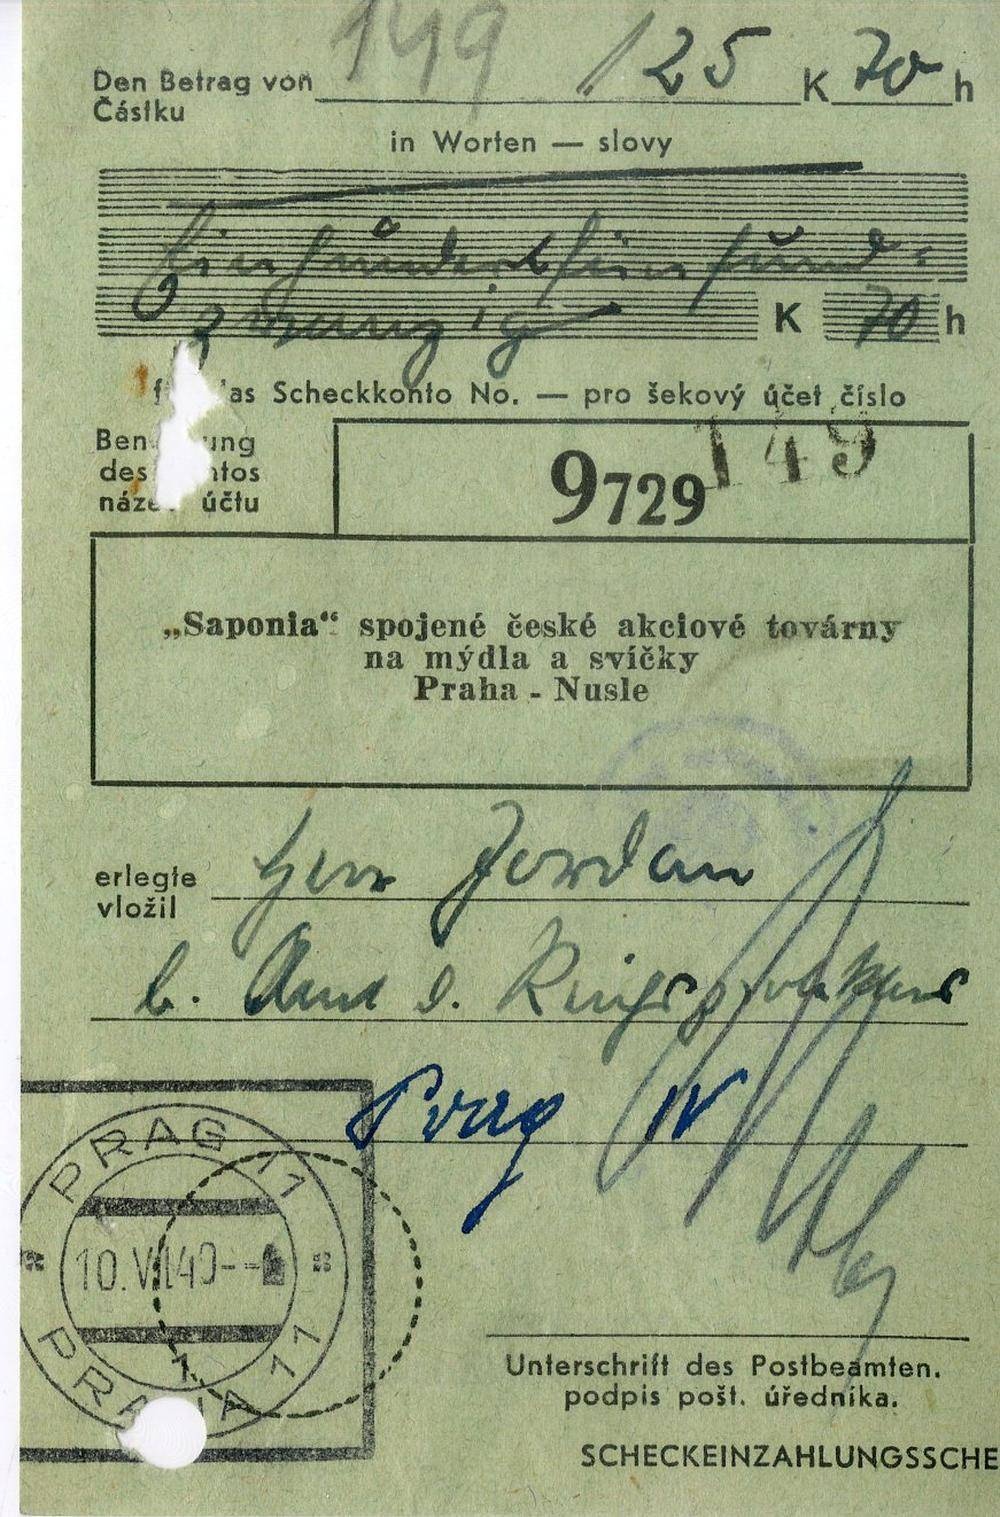 149 125 K 70 h
Den Betrag von
Částku
in Worten — slovy
zwanzig K 70 h
das Scheckkonto No. — pro šekový účet číslo
149
des
účtu
9729
„Saponia“ spojené české akciové továrny
na mýdla a svíčky
Praha - Nusle
erlegte Herr Jordan
vložil
b. Amt d.
Prag IV
PRAG 11
10.VII.40
PRAHA 11
Unterschrift des Postbeamten.
podpis pošt. úředníka.
SCHECKEINZAHLUNGSSCHE